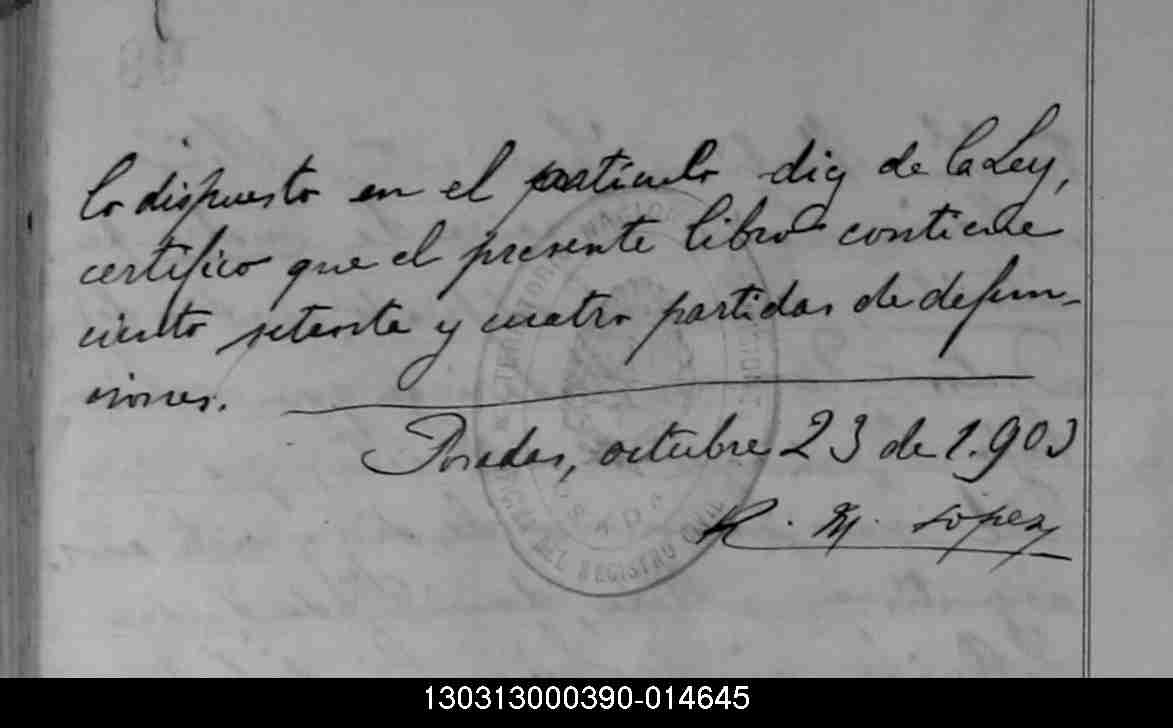 lo dispuesto en el artículo diez de la Ley,
certifico que el presente libro contiene
ciento setenta y cuatro partidas de defun-
ciones.
Posadas, octubre 23 de 1.903
R. M. López
DEL REGISTRO CIVIL
POSADAS
130313000390-014645